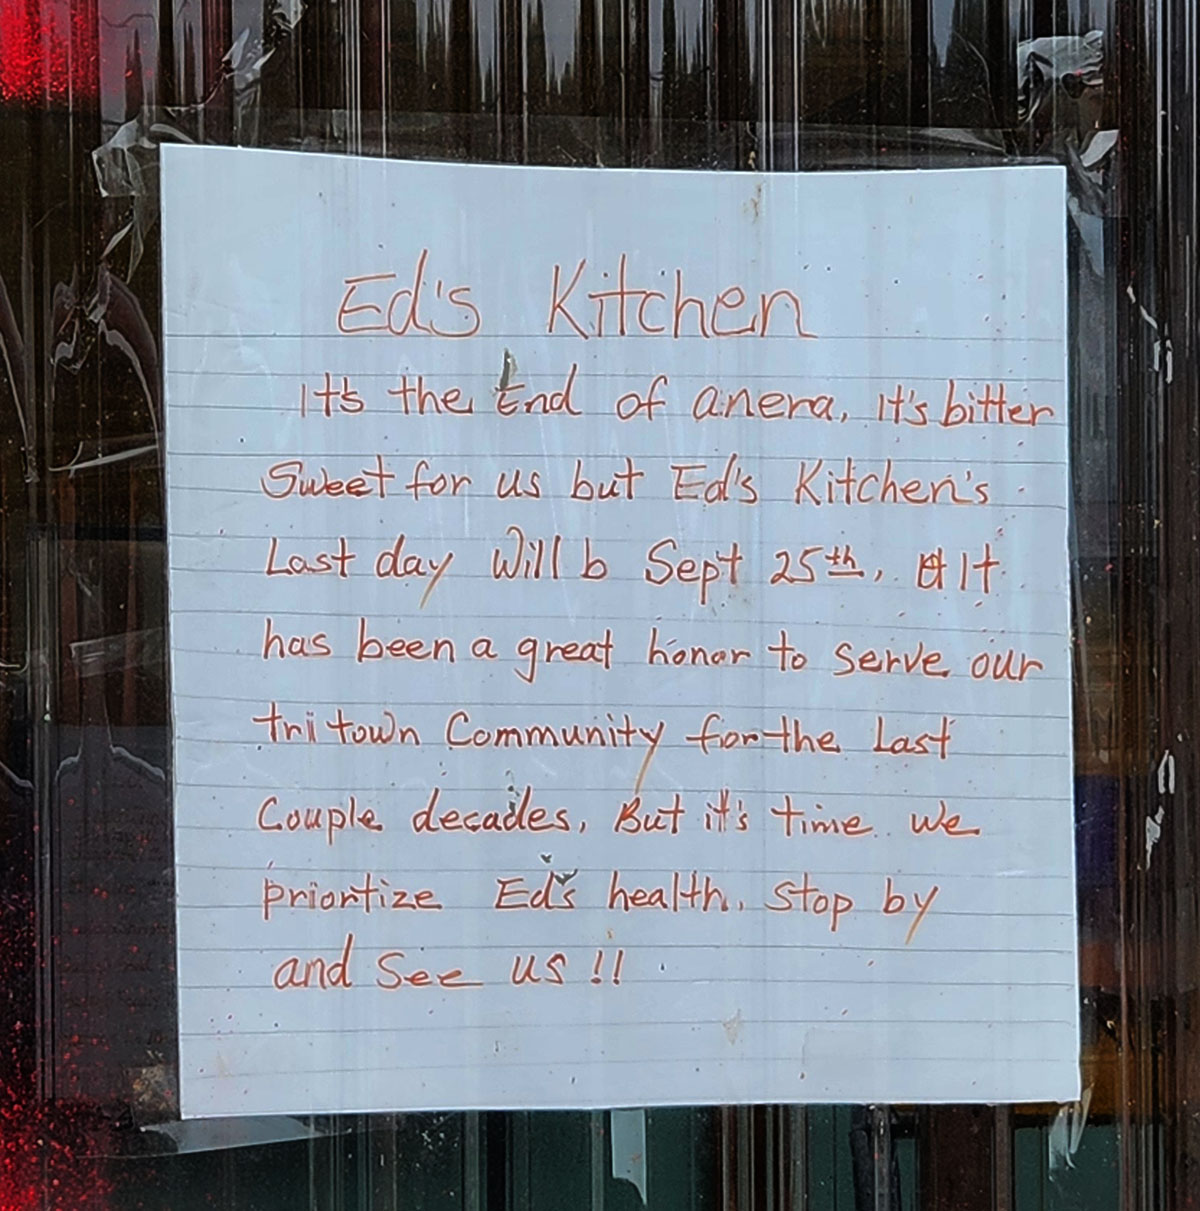 Ed's Kitchen
It's the End of anera, it's bitter
Sweet for us but Ed's Kitchen's
Last day Will b Sept 25th, It
has been a great honor to serve our
tri town Community for the Last
Couple decades, But it's time we
prioritize Ed's health. Stop by
and See us !!